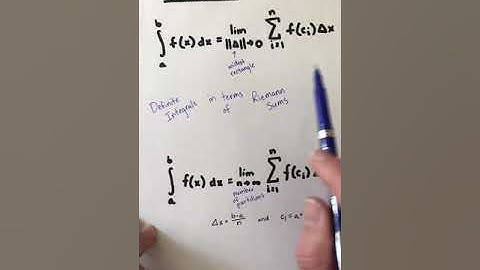 ∫ₐᵇ f(x) dx = lim ||Δ||→0 Σᵢ₌₁ⁿ f(cᵢ) Δx
↑
widest
rectangle
Definite
Integrals in terms of Riemann Sums
∫ₐᵇ f(x) dx = lim n→∞ Σᵢ₌₁ⁿ f(cᵢ)
number
of
partitions
Δx = (b-a)/n and cᵢ = a+